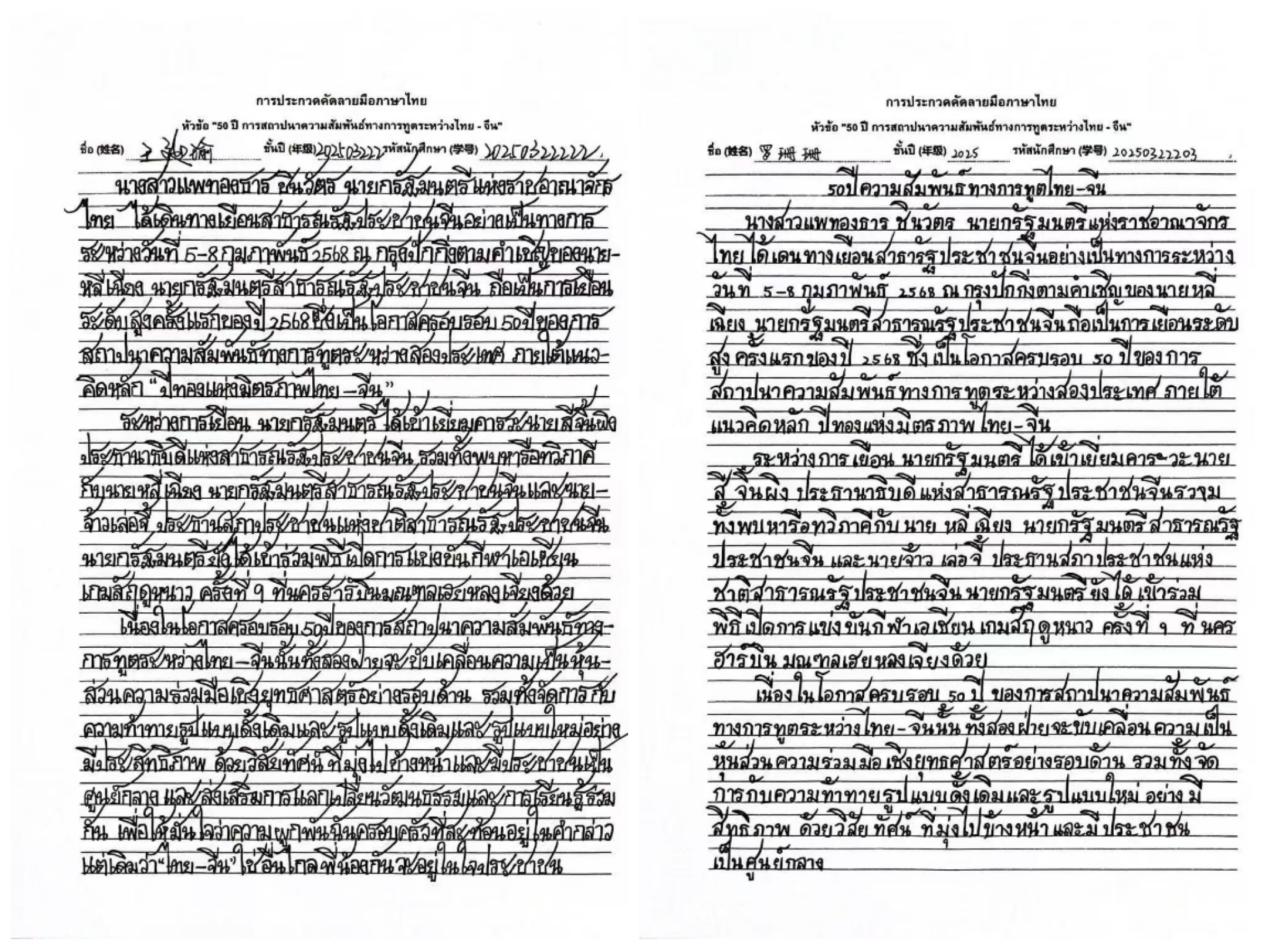 การประกวดคัดลายมือภาษาไทย
หัวข้อ "50 ปี การสถาปนาความสัมพันธ์ทางการทูตระหว่างไทย - จีน"
ชื่อ (姓名) 王 瑜 ชั้นปี (年级) 202503222 รหัสนักศึกษา (学号) 20250322222.
นางสาวแพทองธาร ชินวัตร นายกรัฐมนตรีแห่งราชอาณาจักร
ไทย ได้เดินทางเยือนสาธารณรัฐประชาชนจีนอย่างเป็นทางการ
ระหว่างวันที่ 5-8 กุมภาพันธ์ 2568 ณ กรุงปักกิ่งตามคำเชิญของนาย-
หลี่เฉียง นายกรัฐมนตรีสาธารณรัฐประชาชนจีน ถือเป็นการเยือน
ระดับสูงครั้งแรกของปี 2568 ซึ่งเป็นโอกาสครอบรอบ 50 ปีของการ
สถาปนาความสัมพันธ์ทางการทูตระหว่างสองประเทศ ภายใต้แนว-
คิดหลัก "ปีทองแห่งมิตรภาพไทย-จีน"
ระหว่างการเยือน นายกรัฐมนตรี ได้เข้าเยี่ยมคารวะนายสีจิ้นผิง
ประธานาธิบดีแห่งสาธารณรัฐประชาชนจีน รวมทั้งพบหารือทวิภาคี
กับนายหลี่เฉียง นายกรัฐมนตรีสาธารณรัฐประชาชนจีนและนาย-
จ้าวเล่อจี้ ประธานสภาประชาชนแห่งชาติสาธารณรัฐประชาชนจีน
นายกรัฐมนตรียังได้เข้าร่วมพิธีเปิดการแข่งขันกีฬาเอเชียน
เกมส์ฤดูหนาว ครั้งที่ ๑ ที่นครฮาร์บินมณฑลเฮยหลงเจียงด้วย
เนื่องในโอกาสครอบรอบ 50 ปีของการสถาปนาความสัมพันธ์ทาง-
การทูตระหว่างไทย-จีนนั้นทั้งสองฝ่ายจะขับเคลื่อนความเป็นหุ้น-
ส่วนความร่วมมือเชิงยุทธศาสตร์อย่างรอบด้าน รวมทั้งจัดการกับ
ความท้าทายรูปแบบดั้งเดิมและรูปแบบดั้งเดิมและรูปแบบใหม่อย่าง
มีประสิทธิภาพ ด้วยวิสัยทัศน์ ที่มุ่งไปข้างหน้าและมีประชาชนเป็น
ศูนย์กลาง และส่งเสริมการแลกเปลี่ยนวัฒนธรรมและการเรียนรู้ร่วม
กัน เพื่อให้มั่นใจว่าความผูกพันฉันครอบครัวที่สะท้อนอยู่ในคำกล่าว
แต่เดิมว่า "ไทย-จีน" ใช่อื่นไกล พี่น้องกัน จะอยู่ในใจประชาชน
การประกวดคัดลายมือภาษาไทย
หัวข้อ "50 ปี การสถาปนาความสัมพันธ์ทางการทูตระหว่างไทย - จีน"
ชื่อ (姓名) 罗珊珊 ชั้นปี (年级) 2025 รหัสนักศึกษา (学号) 20250322203 .
50ปี ความสัมพันธ์ทางการทูตไทย-จีน
นางสาวแพทองธาร ชินวัตร นายกรัฐมนตรีแห่งราชอาณาจักร
ไทย ได้เดนทางเยือนสาธารัฐประชาชนจีนอย่างเป็นทางการระหว่าง
วันที่ 5-8 กุมภาพันธ์ 2568 ณ กรุงปักกิ่งตามคำเชิญของนายหลี่
เฉียง นายกรัฐมนตรีสาธารณรัฐประชาชนจีนถือเป็นการเยือนระดับ
สูง ครั้งแรกของปี 2568 ซึ่งเป็นโอกาสครบรอบ 50 ปีของการ
สถาปนาความสัมพันธ์ทางการทูตระหว่างสองประเทศ ภายใต้
แนวคิดหลัก ปีทองแห่งมิตรภาพ ไทย-จีน
ระหว่างการเยือน นายกรัฐมนตรี ได้เข้าเยี่ยมคาระวะนาย
สี จิ้นผิง ประธานาธิบดีแห่งสาธารณรัฐประชาชนจีนรวม
ทั้งพบหารือทวิภาคีกับนาย หลี่ เฉียง นายกรัฐมนตรีสาธารณรัฐ
ประชาชนจีน และนายจ้าว เล่อจี้ ประธานสภาประชาชนแห่ง
ชาติสาธารณรัฐประชาชนจีน นายกรัฐมนตรียังได้ เข้าร่วม
พิธีเปิดการแข่งขันกีฬาเอเชียน เกมส์ฤดูหนาว ครั้งที่ ๑ ที่นคร
ฮาร์บิน มณฑลเฮยหลงเจียงด้วย
เนื่องในโอกาสครบรอบ 50 ปี ของการสถาปนาความสัมพันธ์
ทางการทูตระหว่างไทย-จีนนั้น ทั้งสองฝ่ายจะขับเคลื่อนความเป็น
หุ้นส่วนความร่วมมือเชิงยุทธศาสตร์อย่างรอบด้าน รวมทั้งจัด
การกับความท้าทายรูปแบบดั้งเดิมและรูปแบบใหม่ อย่างมี
สิทธิภาพ ด้วยวิสัยทัศน์ ที่มุ่งไปข้างหน้า และมี ประชาชน
เป็นศูนย์กลาง